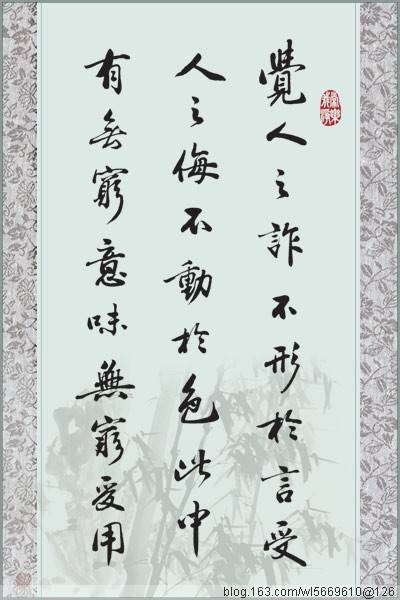 覺人之詐不形於言受
人之侮不動於色此中
有無窮意味無窮受用
blog.163.com/wl5669610@126